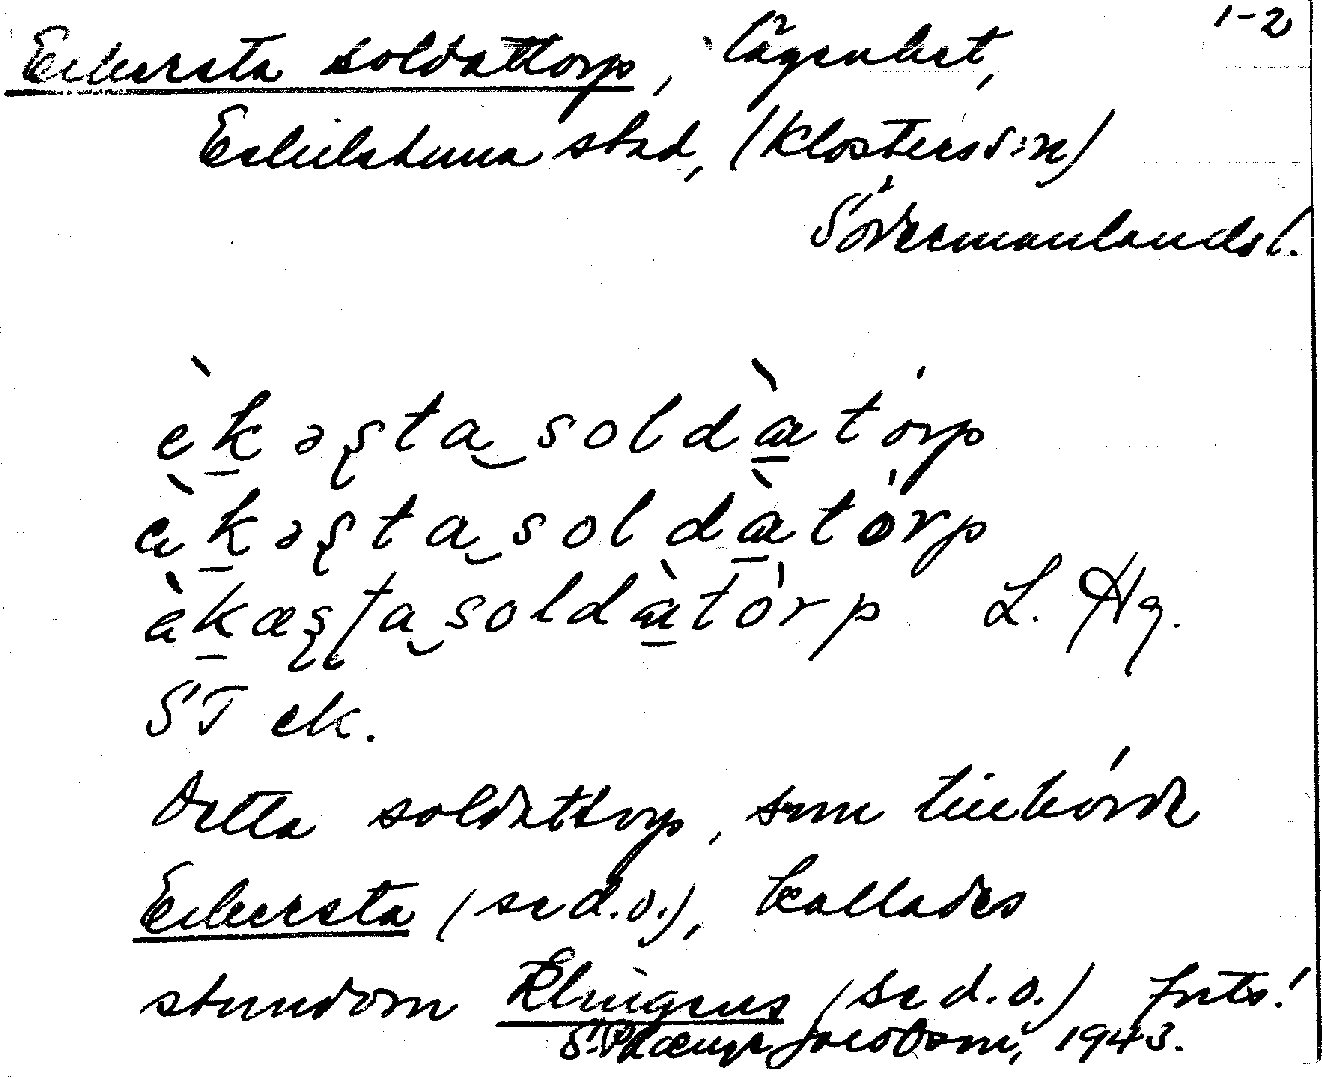 1-2
Eckersta soldattorp, lägenhet,
Eskilstuna stad, (Klosters sn)
Södermanlands l.
èkəʂta soldàtórp
àkəʂta soldàtórp
àkæʂʈa soldàtórp L. Hg.
ST ek.
Detta soldattorp, som tillhörde
Eckersta (se d.o.), kallades
stundom Klingens (se d.o.) forts!
Jacobson, 1943.